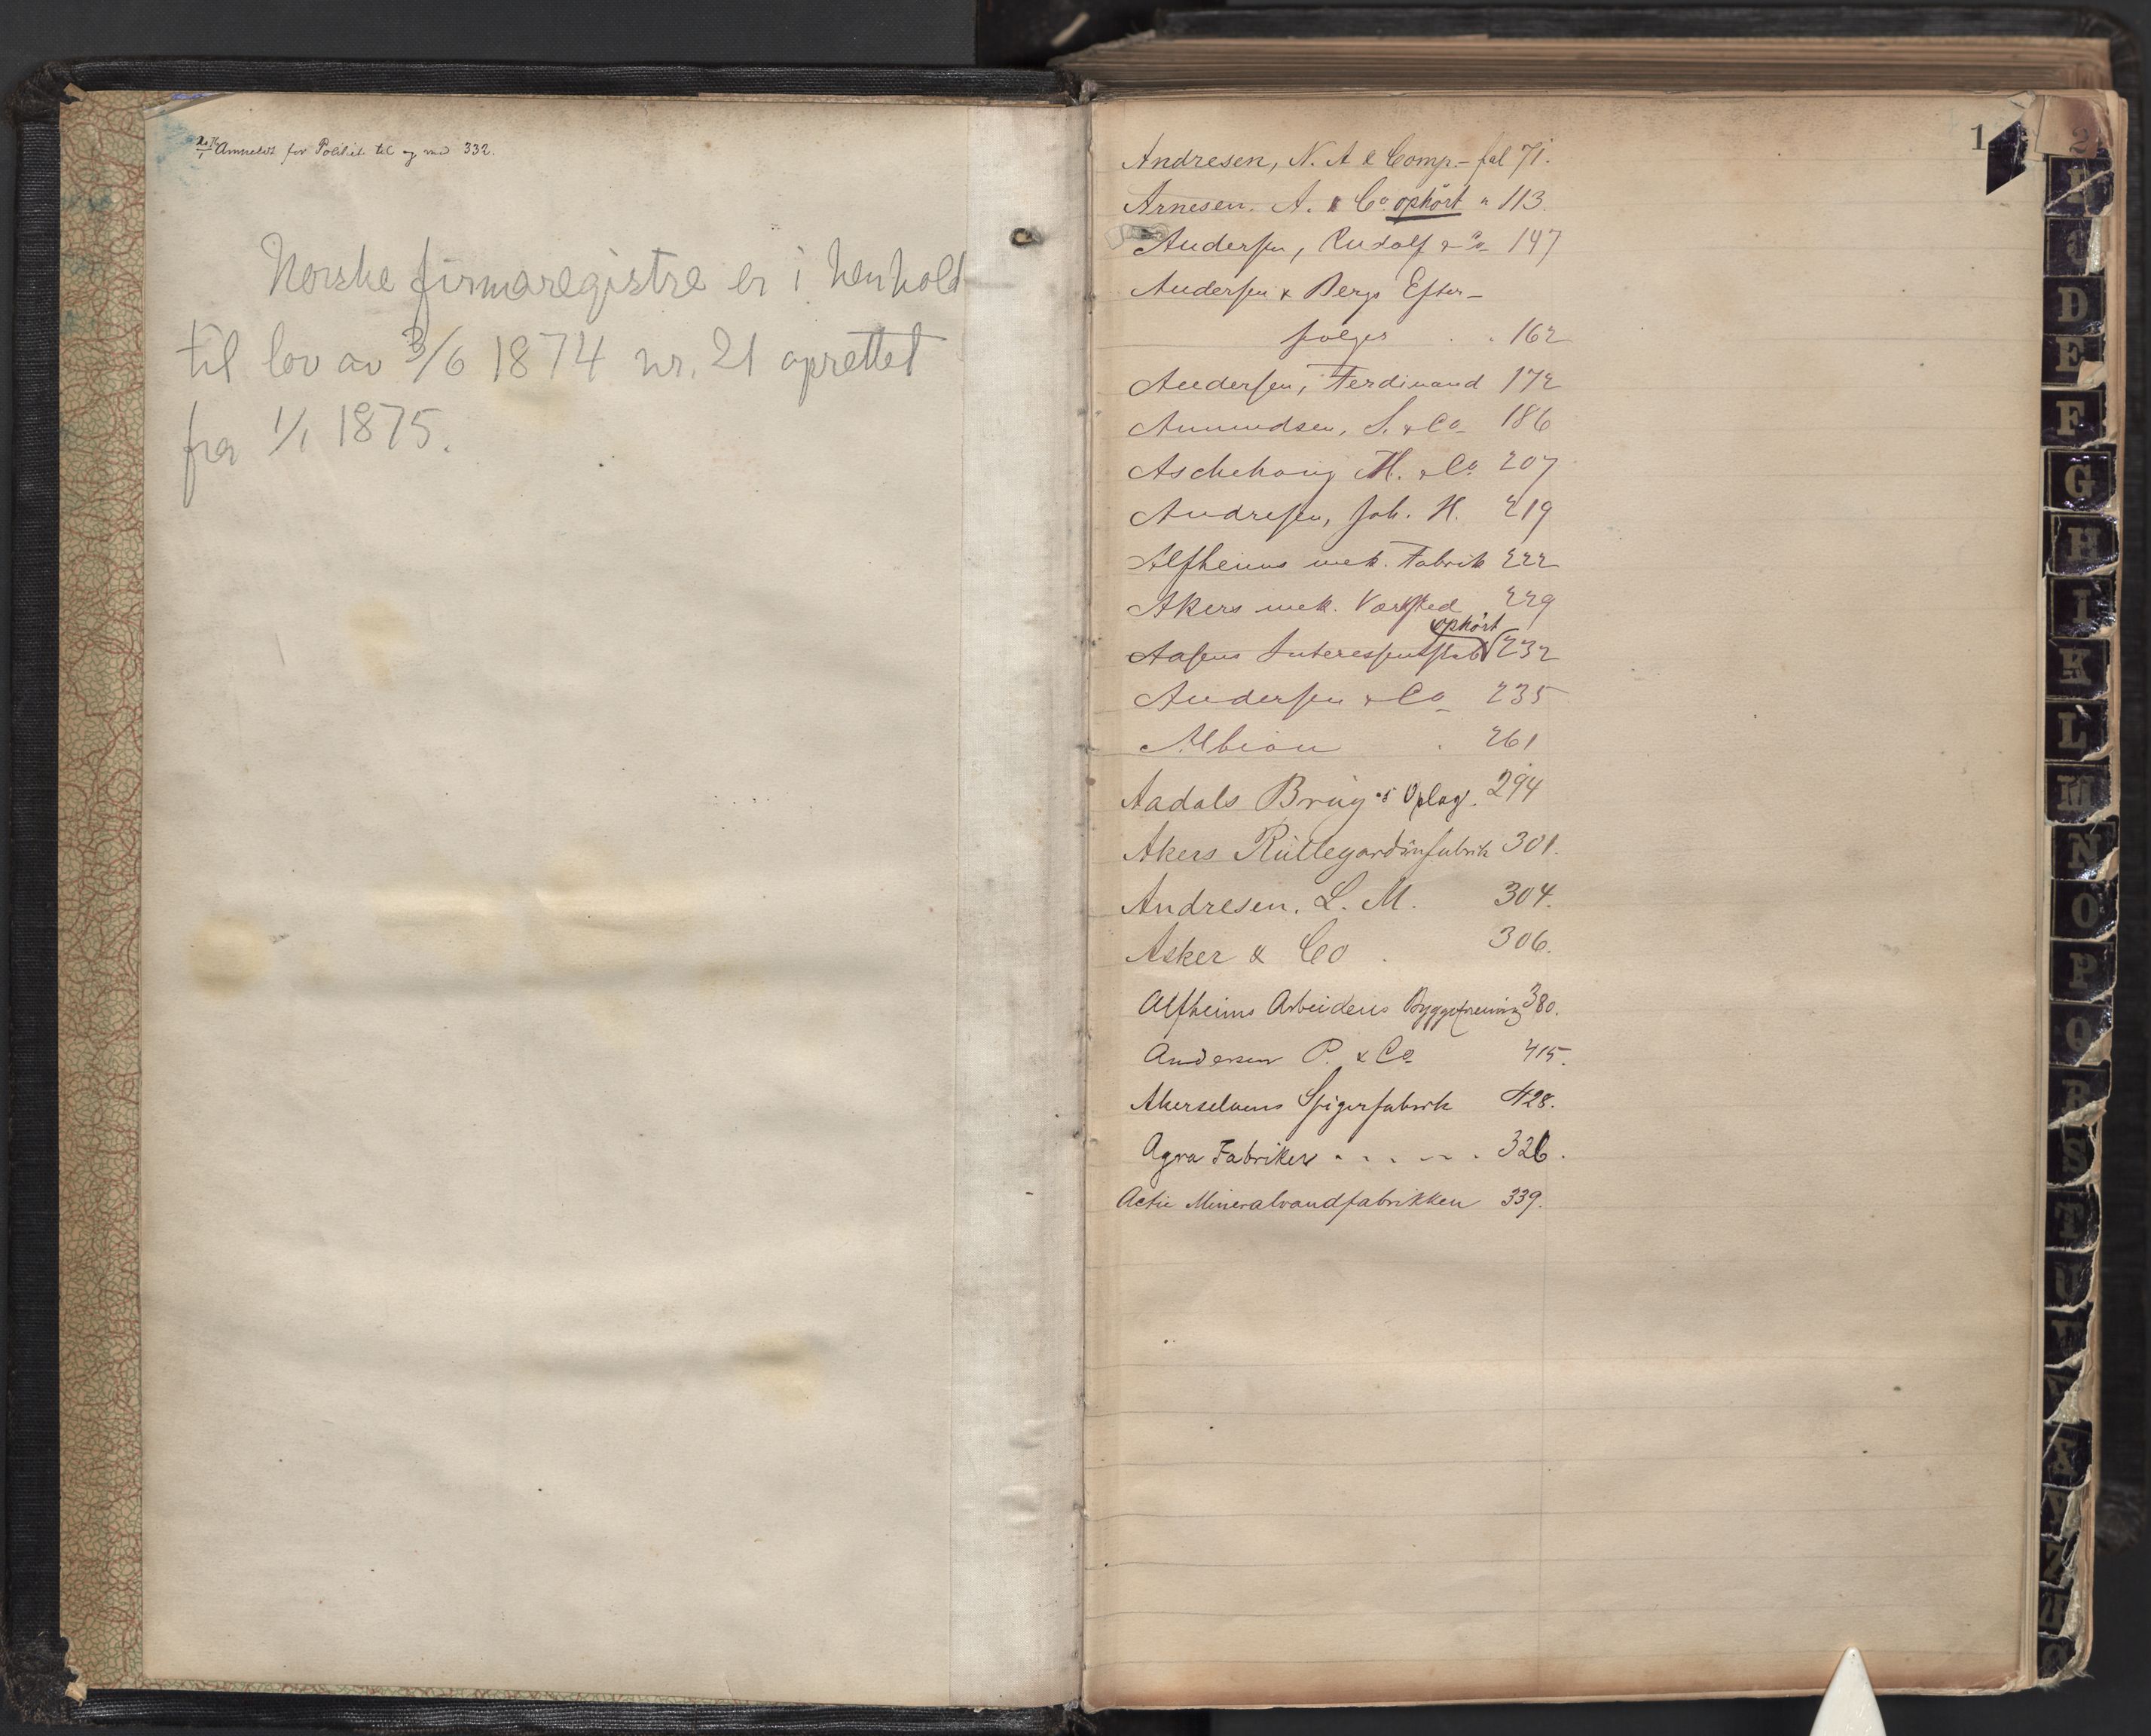 Anmeldt for Politiet til og med 332.
Norske firmaregistre er i henhold
til lov av 3/6 1874 nr. 21 oprettet
fra 1/1 1875.
1
2
Andresen, N. A & Comp. - fol 71.
Arnesen. A. & Co ophört " 113.
Andersen, Rudolf & Co 147
Andersen & Bergs Efter-
følger . . 162
Andersen, Ferdinand 172
Amundsen, S. & Co 186
Aschehoug H. & Co 207
Andresen, Joh. H. 219
Alfheims mek. Fabrik 222
Akers mek. Værksted . 229
ophört
Aasens Interessentskab 232
Andersen & Co 235
Albion . 261
Aadals Brug's Oplag. 294
Akers Rullegardinfabrik 301.
Andresen. L. M. 304.
Asker & Co . 306.
Alfheims Arbeideres Byggeforening 380.
Andersen P. & Co 415.
Akerselvens Spigerfabrik 428.
Agra Fabriker . . . . . 326.
Actie Mineralvandfabrikken 339.
D
E
F
G
H
I
K
L
M
N
O
P
Q
R
S
T
U